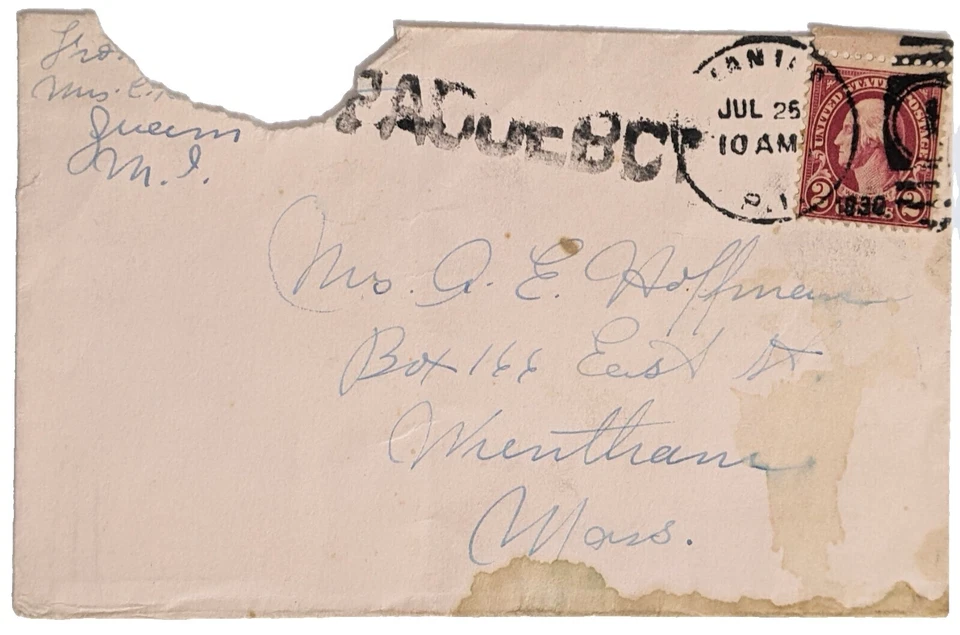 From
Mrs. C.
Guam
M. I.
PAQUEBOT
MANILA
JUL 25
10 AM
P.I.
1930
UNITED STATES POSTAGE
2 2
Mrs. A. E. Hoffman
Box 166 East St
Wrentham
Mass.